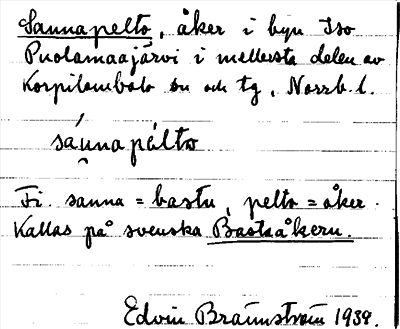 Saunapelto, åker i byn Iso
Puolamaajärvi i mellersta delen av
Korpilombolo sn och tg, Norrb. l.
sáu̯napálto
Fi. sauna = bastu, pelto = åker.
Kallas på svenska Bastuåkern.
Edvin Brännström 1938.